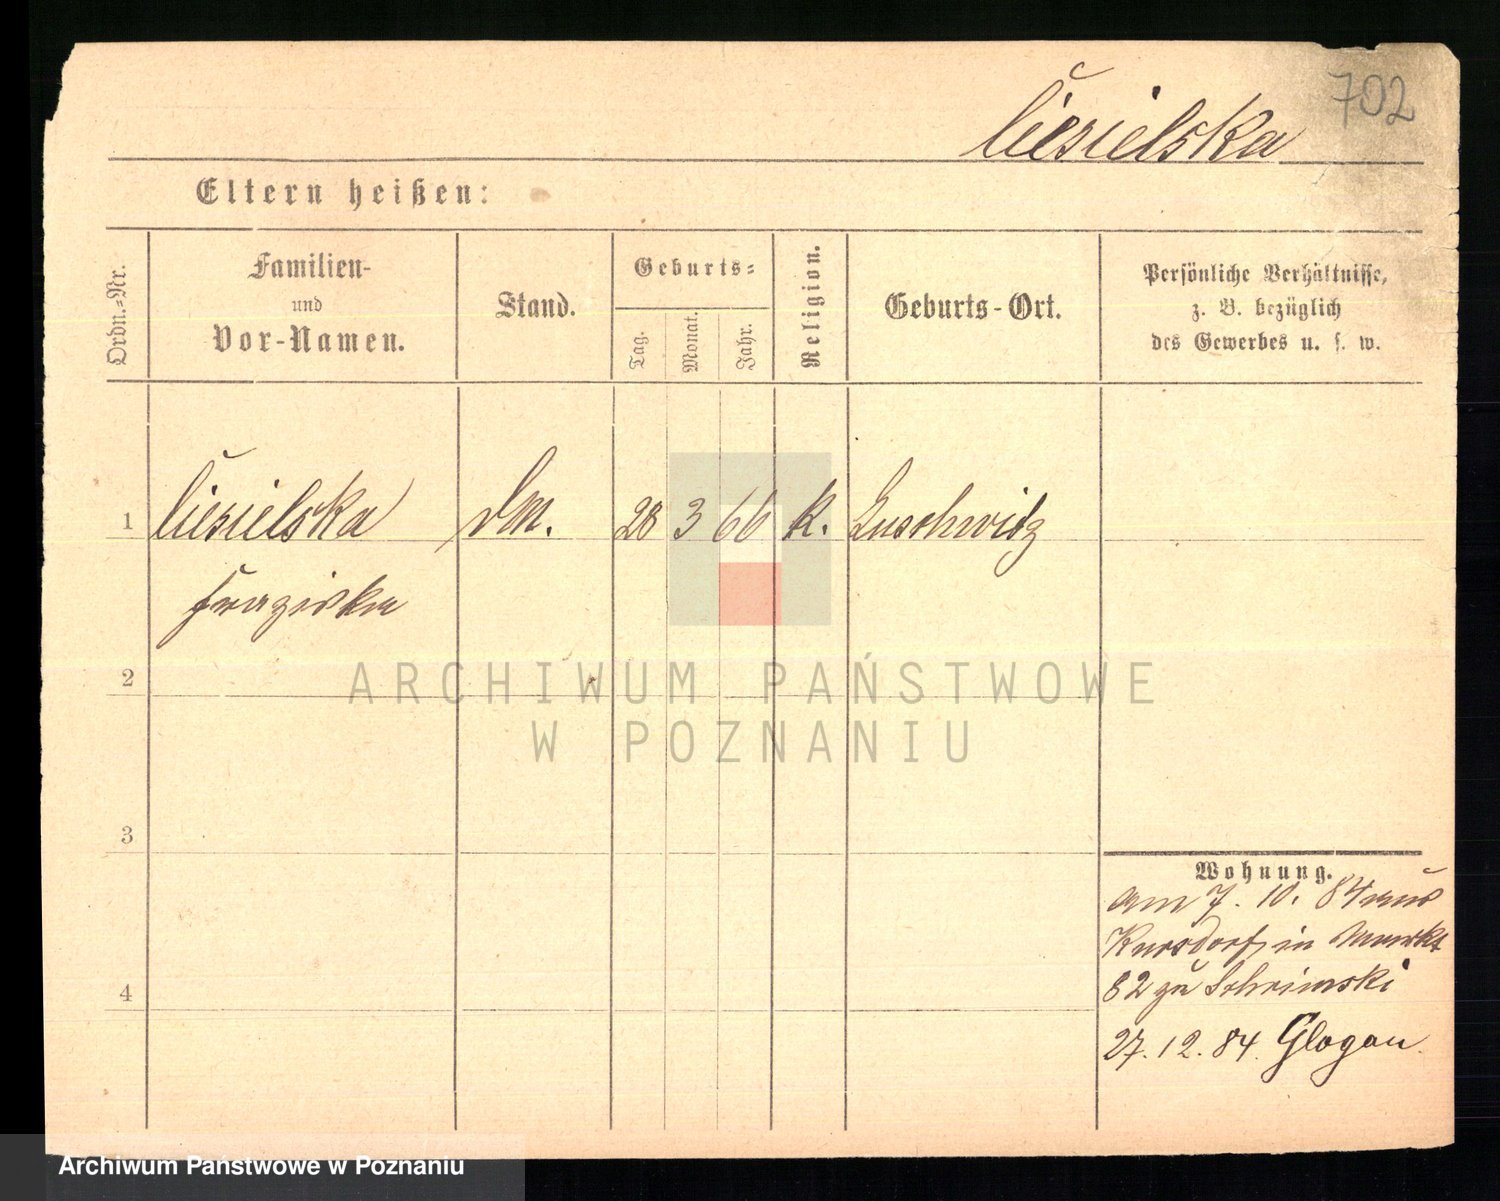 702
Ciesielska
Eltern heißen:
Ordn.-Nr.
Familien-
und
Vor-Namen.
Stand.
Geburts-
Tag.
Monat.
Jahr.
Religion.
Geburts-Ort.
Persönliche Verhältnisse,
z. B. bezüglich
des Gewerbes u. s. w.
1 Ciesielska dm. 28 3 66 k. Luschwitz
Franziska
2
ARCHIWUM PAŃSTWOWE
W POZNANIU
3
4
Wohnung.
am 7. 10. 84 aus
Kursdorf, in Markt
82 zu Schrimski
27. 12. 84. Glogau.
Archiwum Państwowe w Poznaniu